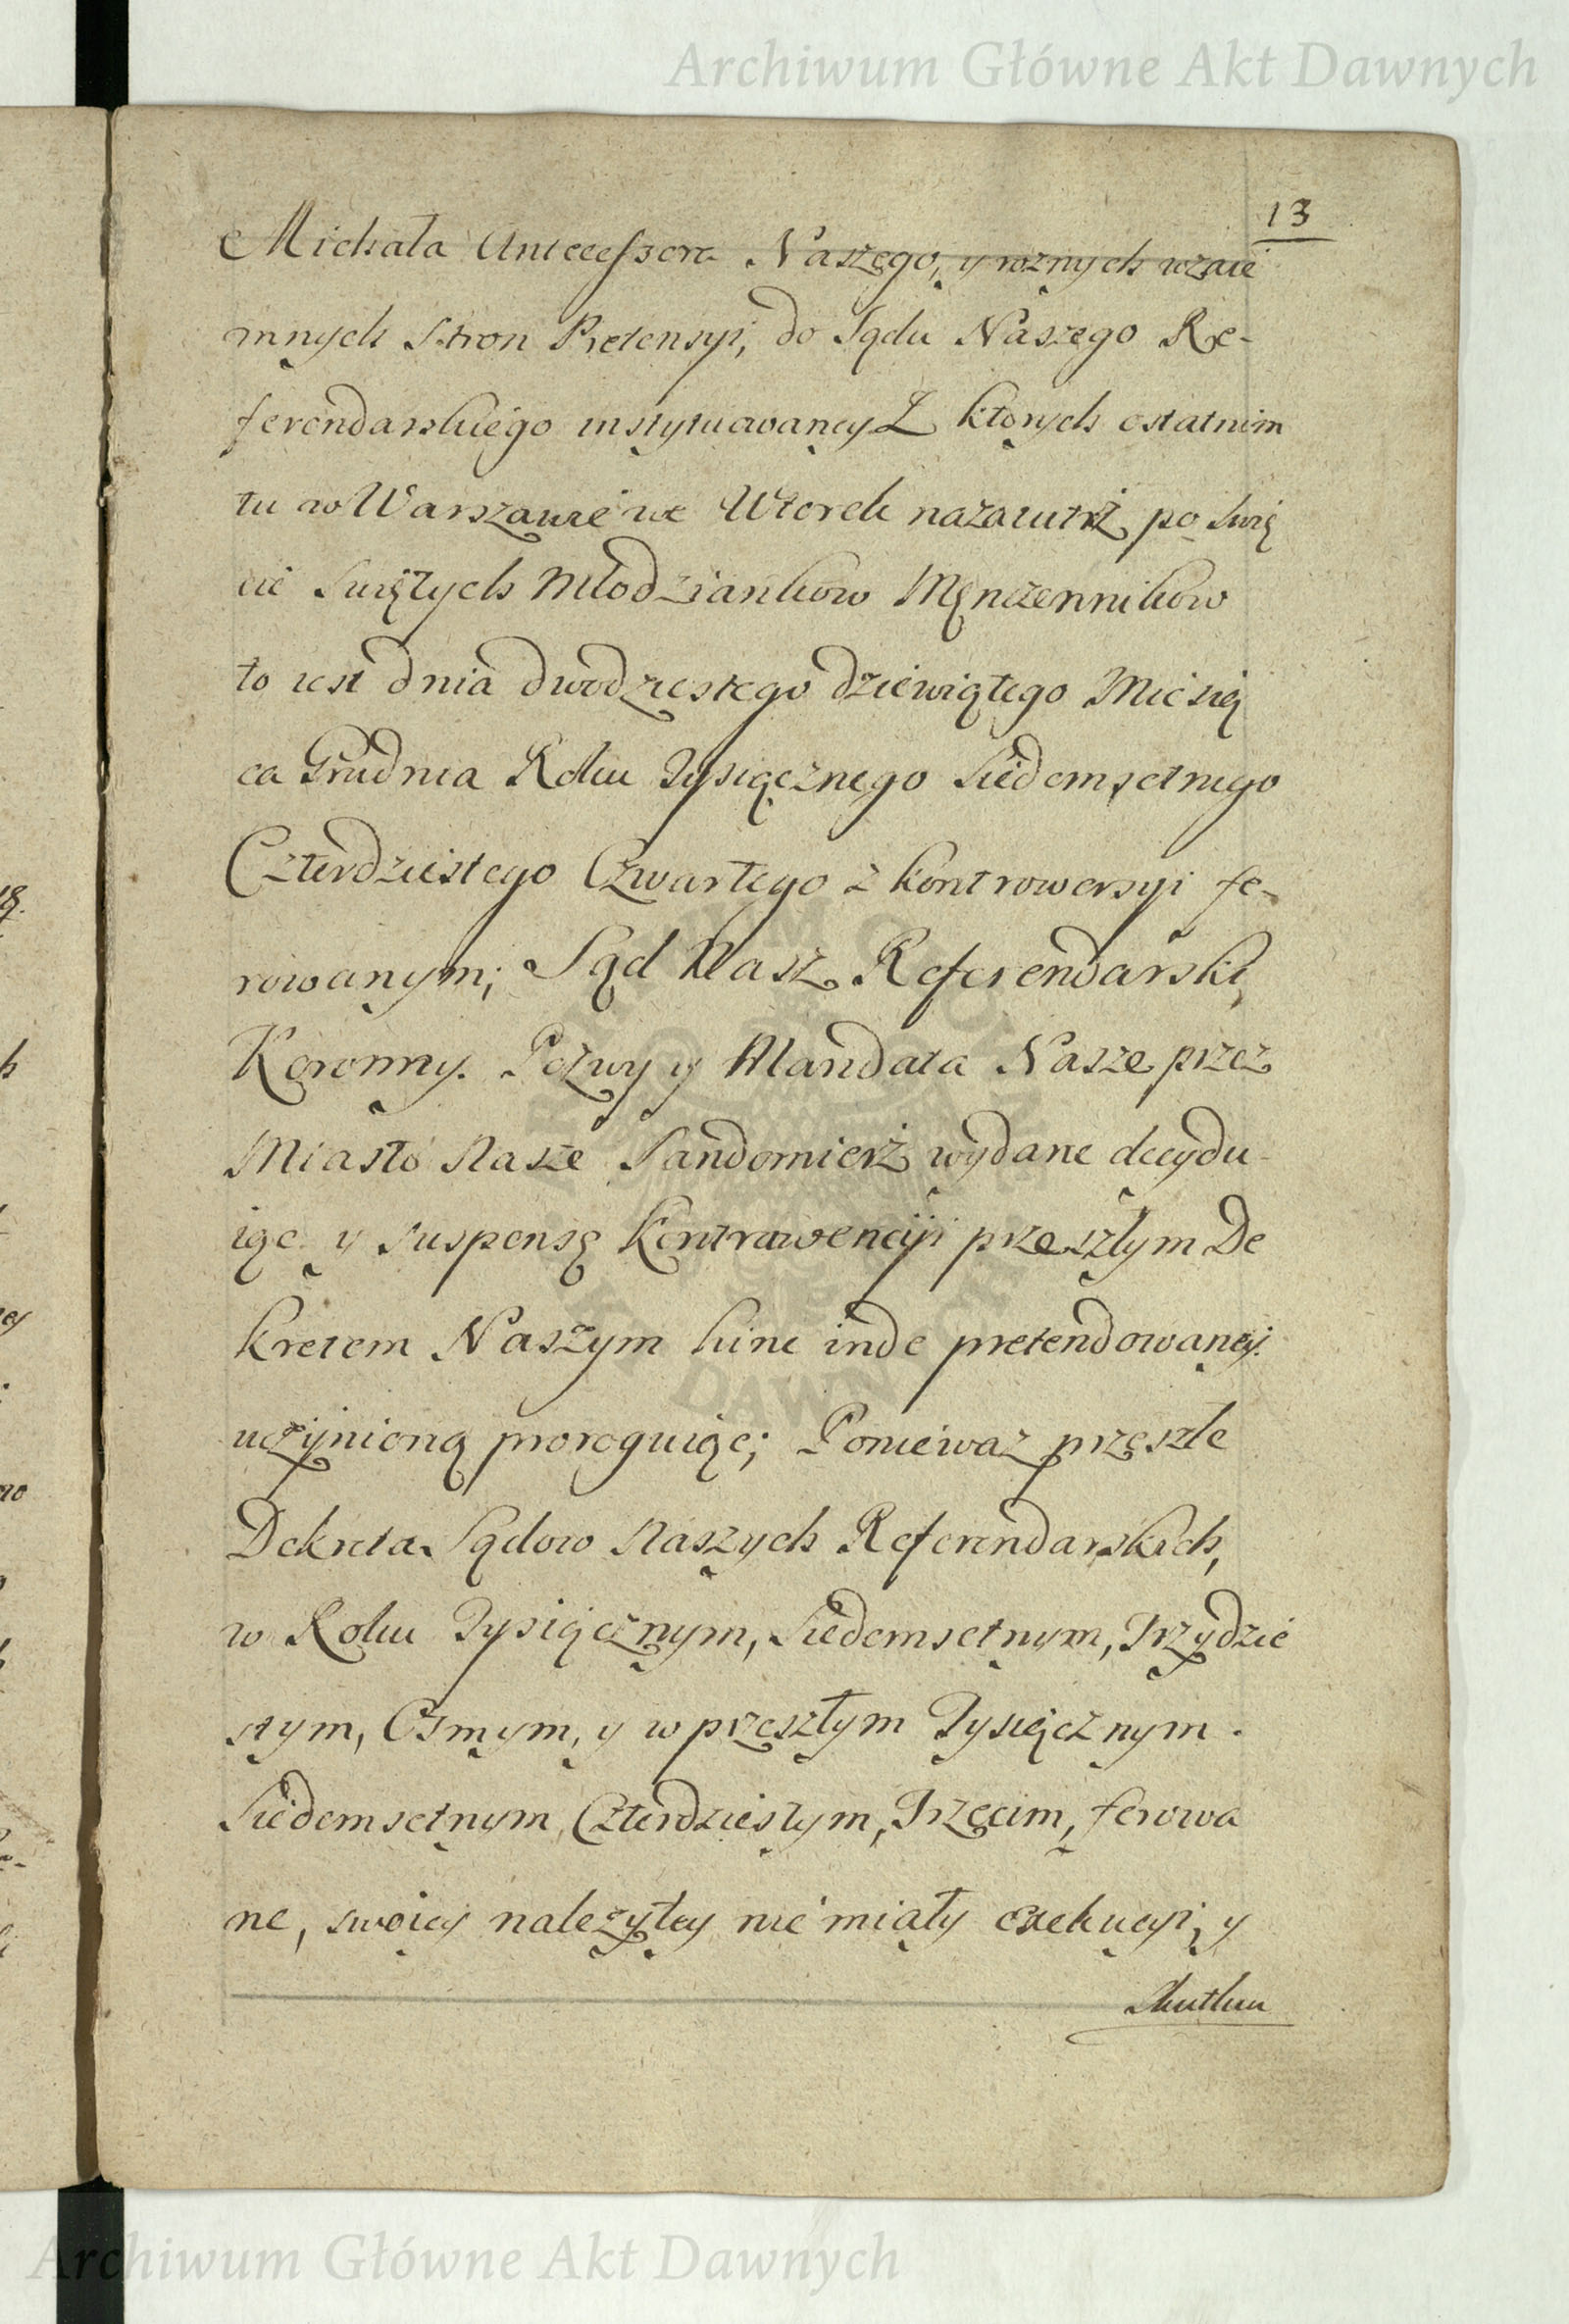 Archiwum Główne Akt Dawnych
13
Michała Antecessora Naszego, y roznych wzaie
mnych Stron Pretensyi, do Sądu Naszego Re-
ferendarskiego instytuowaney Z ktorych ostatnim
tu w Warszawie we Wtorek nazaiutrz po Swię
cie Swiętych Młodziankow Męnczennikow
to iest dnia dwudziestego dziewiątego Miesią
ca Grudnia Roku Tysiącznego Siedemsetnego
Czterdziestego Czwartego z kontrowersyi fe-
rowanym; Sąd Nasz Referendarski
Koronny. Pozwy y Mandata Nasze przez
Miasto Nasze Sandomierz wydane decydu-
iąc y suspensę Kontrawencyi przeszłym De
kretem Naszym hinc inde pretendowaney
uczynioną proroguiąc; Poniewaz przeszłe
Dekreta Sądow Naszych Referendarskich,
w Roku Tysiącznym, Siedemsetnym, Trzydzie
stym, Osmym, y w przeszłym Tysiącznym.
Siedemsetnym, Czterdziestym, Trzecim, ferowa
ne, swoiey nalezytey nie miały exekucyi, y
Skutku
ARCHIWUM GŁÓWNE AKT DAWNYCH
Archiwum Główne Akt Dawnych